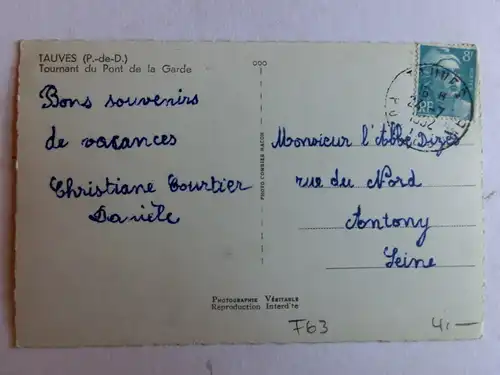 TAUVES (P.-de-D.)
Tournant du Pont de la Garde
Bons souvenirs
de vacances
Christiane Courtier
Danièle
PHOTO COMBIER MACON
Monsieur l'Abbé Dizes
rue du Nord
Antony
Seine
8F
RF
1952
PHOTOGRAPHIE VÉRITABLE
Reproduction Interd'te
F63
4,—